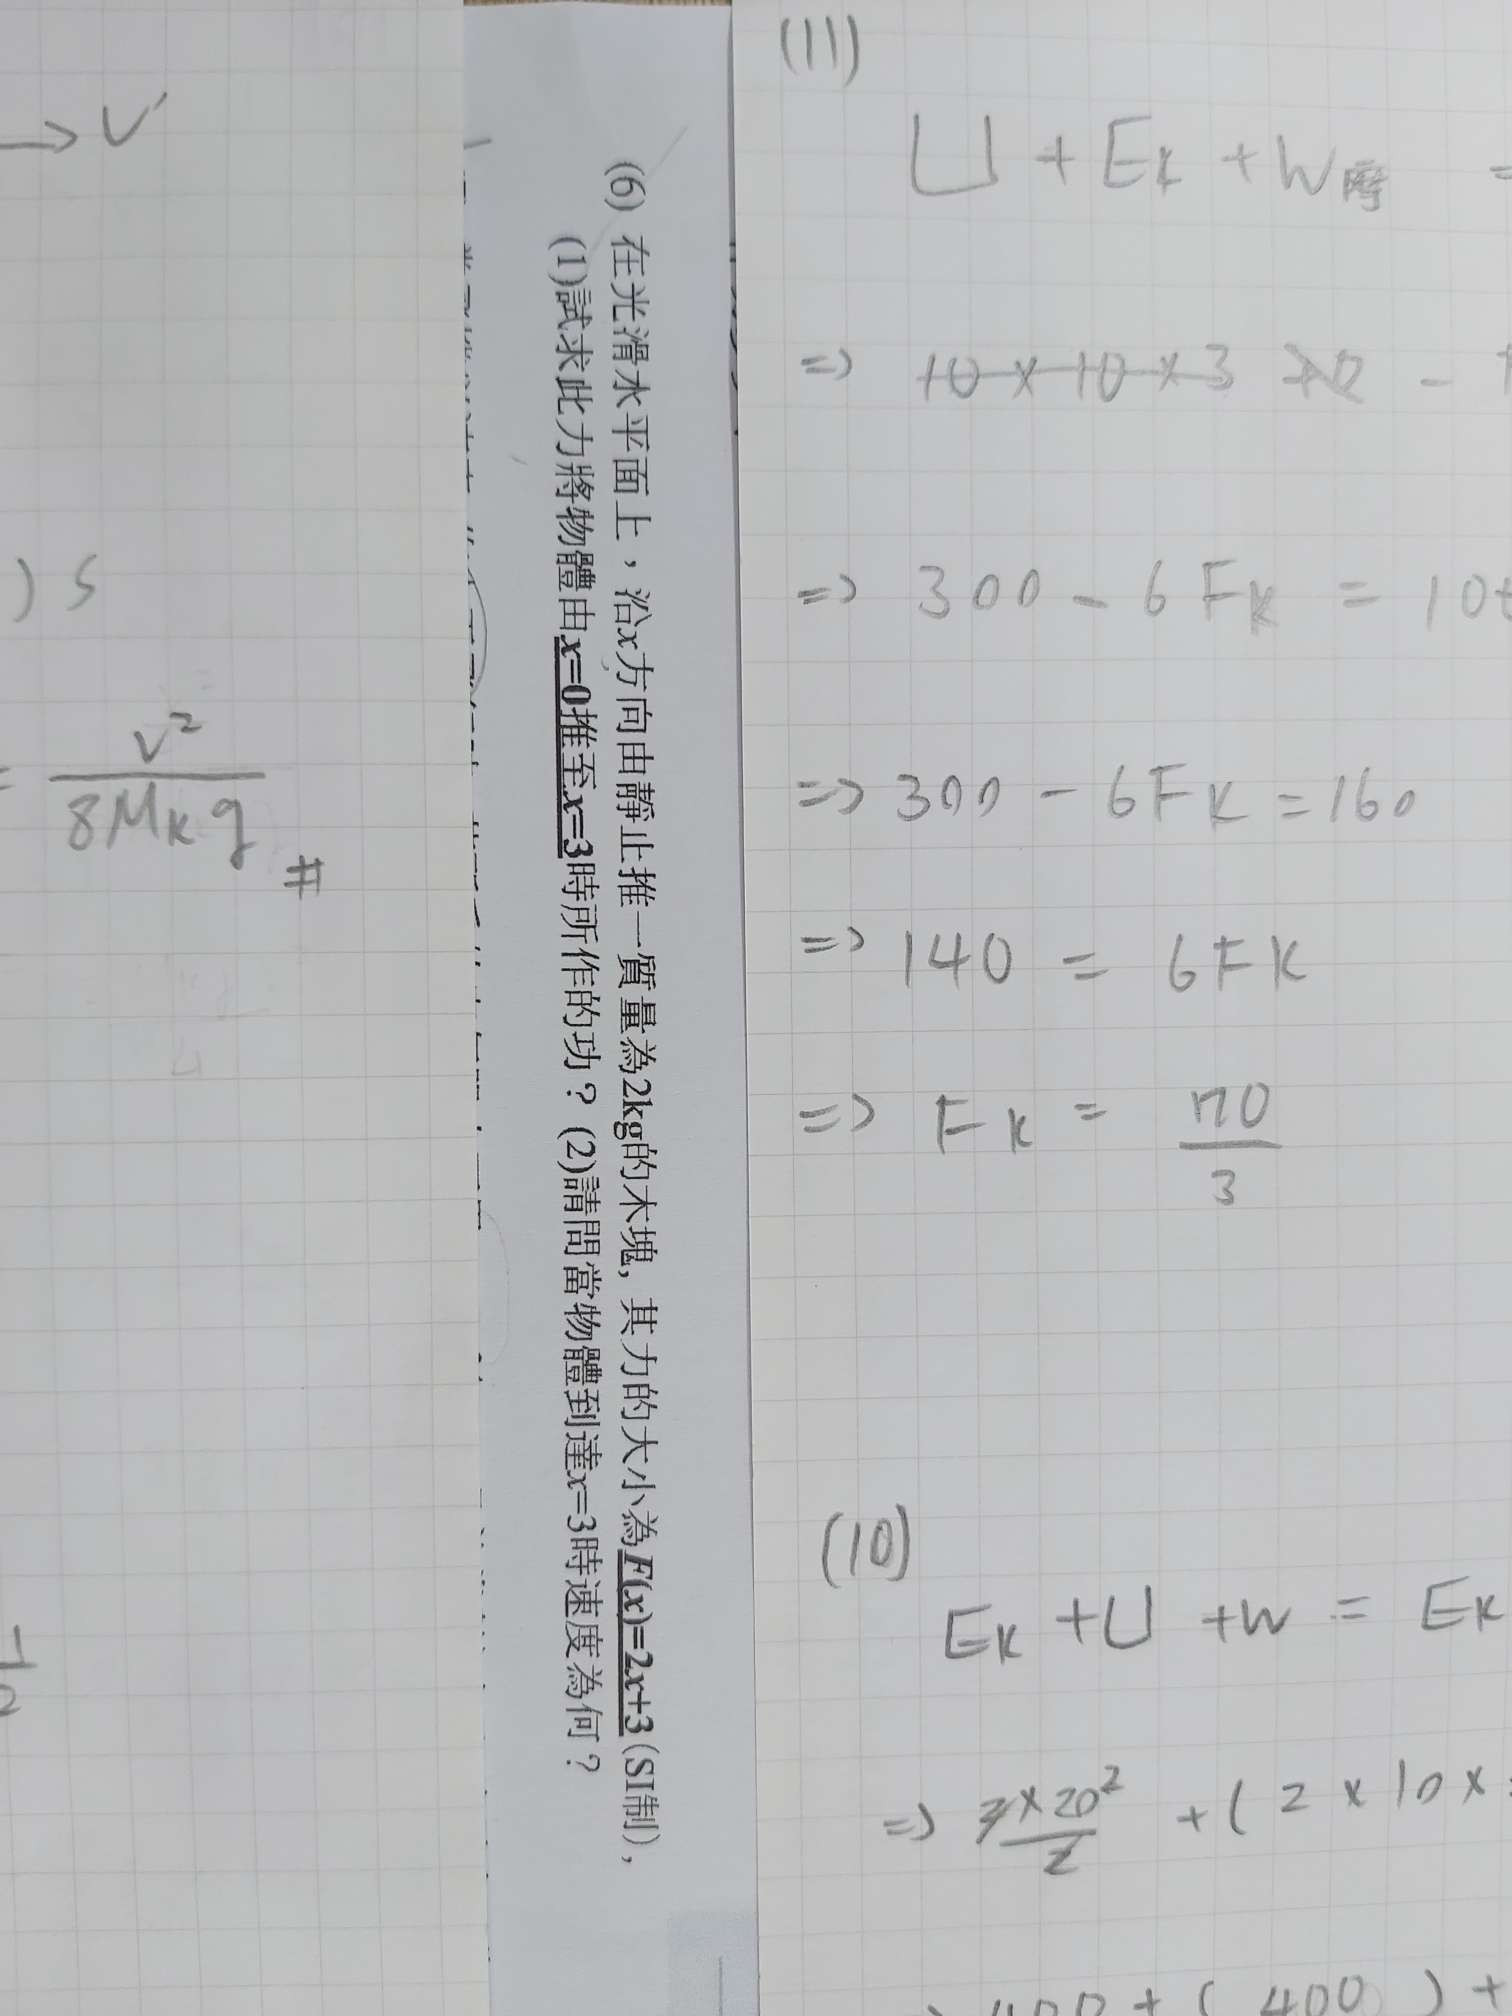 → V'
) S
= V² / 8Mκg #
1/2
(6) 在光滑水平面上，沿x方向由靜止推一質量為2kg的木塊, 其力的大小為F(x)=2x+3 (SI制),
(1)試求此力將物體由x=0推至x=3時所作的功？ (2)請問當物體到達x=3時速度為何？
(11)
U + Eκ + W摩 =
=> 10 × 10 × 3 -
=> 300 - 6Fκ = 10
=> 300 - 6Fκ = 160
=> 140 = 6Fκ
=> Fκ = 70/3
(10)
Eκ + U + W = Eκ
=> 2×20²/2 + ( 2 × 10 ×
400 + ( 400 ) +